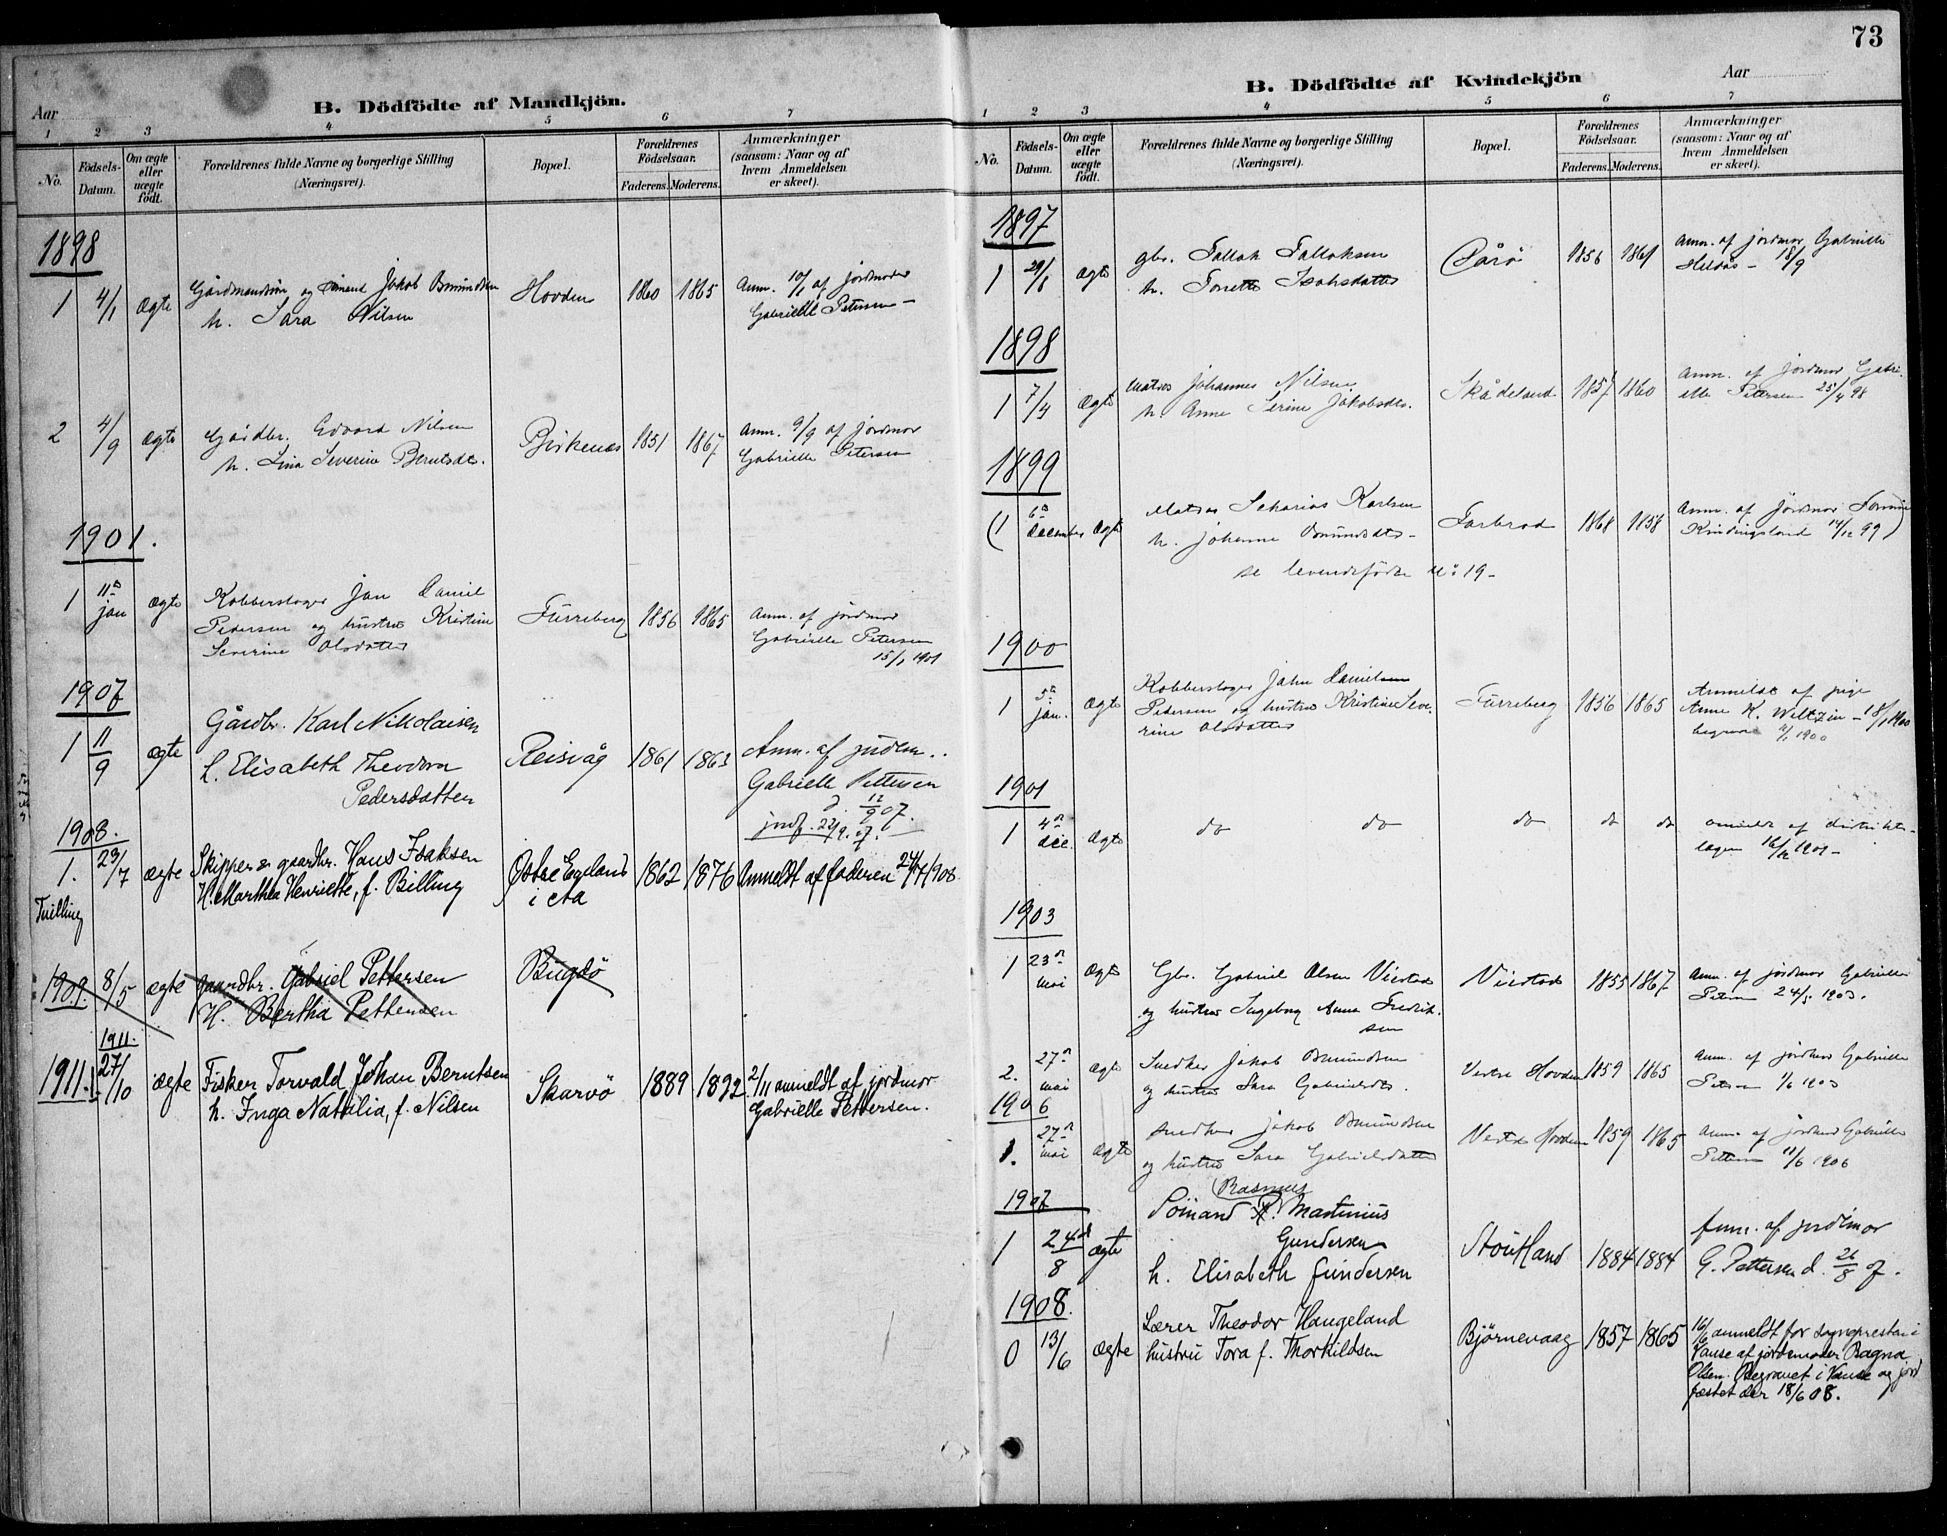 73
Aar
B. Dödfödte af Mandkjön.
1 2 3 4 5 6 7
No.
Födsels-
Datum.
Om ægte
eller
uægte
födt.
Forældrenes fulde Navne og borgerlige Stilling
(Næringsvei).
Bopæl.
Forældrenes
Födselsaar.
Faderens. Moderens.
Anmærkninger
(saasom: Naar og af
hvem Anmeldelsen
er skeet).
1898
1 4/1 ægte Jakob Omundsen Hovden 1860 1865 Anm. 10/1 af jordmoder
h. Sara Nilsen Gabrielle Petersen -
2 4/9 ægte Gårdbr. Edvard Nilsen Birkenes 1851 1867 Anm. 9/9 af jordmor
h. Lina Severine Berntsdtr. Gabrielle Petersen
1901.
1 11te jan ægte Kobberslager Jan Daniel Furreberg 1856 1865 Anm. af jordmor
Pedersen og hustru Kristine Gabrielle Petersen
Severine Olsdatter 15/1 1901
1907
1 11/9 ægte Gårdbr. Karl Nikolaisen Reisvåg 1861 1863 Anm. af jordm..
h. Elisabeth Theodora Gabrielle Pettersen
Pedersdatter d. 12/9 07.
jordf. 22/9. 07.
1908.
1. 23/7 ægte Skipper & gaardbr. Hans Isaksen Østre Egeland 1862 1876 Anmeldt af faderen 24/7 1908
Tvilling H. Marthea Henriette, f. Billing
1909. 8/5 ægte gaardbr. Gabriel Pettersen Bugdø
H. Bertha Pettersen
1911.
1911. 1. 27/10 ægte Fisker Torvald Johan Berntsen Skarvø 1889 1892 2/11 anmeldt af jordmor
h. Inga Nathilia, f. Nilsen Gabrielle Pettersen.
B. Dödfödte af Kvindekjön
Aar
1 2 3 4 5 6 7
No.
Födsels-
Datum.
Om ægte
eller
uægte
födt.
Forældrenes fulde Navne og borgerlige Stilling
(Næringsvei).
Bopæl.
Forældrenes
Födselsaar.
Faderens. Moderens.
Anmærkninger
(saasom: Naar og af
hvem Anmeldelsen
er skeet).
1897
1 ægte gbr. Tallak Tallaksen 1856 1861 Anm. af jordmor Gabrielle
h. Tonette Isaksdatter 18/9
1898
1 7/4 ægte Matros Johannes Nilsen Skådeland 1857 1860 Anm. af jordmor Gabri-
h. Anne Serine Jakobsdtr. elle Petersen 25/4 98
1899
(1 6te december ægte Matros Sekarias Karlsen Farbrod 1868 1858 Anm. af jordmor Tomine
h. Johanne Omundsdtr - Kvindingsland 14/12 99)
se levendefödte No 19 -
1900
1 5te jan. ægte Kobberslager Jahn Danielsen Furreberg 1856 1865 Anmeldt af pige
Pedersen og hustru Kristine Seve- Anne K. Weltzin - 18/1 1900
rine Olsdatter 1900
1901
1 4de dec. ægte do do do do do anmeldt af distrikts-
lægen 16/12 1901 -
1903
1 23de mai ægte Gbr. Gabriel Olsen Vierstad Vierstad 1855 1867 Anm. af jordmor Gabrielle
og hustru Ingeborg Anna Fredrik- Petersen 24/5 1903.
sen
2. 27de mai ægte Snedker Jakob Omundsen Vestre Hovden 1859 1865 Anm. af jordmor Gabrielle
og hustru Sara Gabrielsdtr. Petersen 1/6 1903
1906
1. 27de mai ægte Snedker Jakob Omundsen Vestre Hovden 1859 1865 Anm. af jordmor Gabrielle
og hustru Sara Gabrielsdatter Pettersen 11/6 1906
1907
Rasmus
1 24de/8 ægte Sömand R. Martinius Stöutland 1884 1884 Anm. af jordmor
Gundersen
h. Elisabeth Gundersen G. Pettersen d. 26/8 07.
1908.
0 13/6 ægte Lærer Theodor Haugeland Bjørnevaag 1857 1865 16/6 anmeldt for sognepresten i
hustru Tora f. Thorkildsen Vanse af jordemoder Ragna
Olsen. Begravet i Vanse og jord
fæstet der 18/6 08.